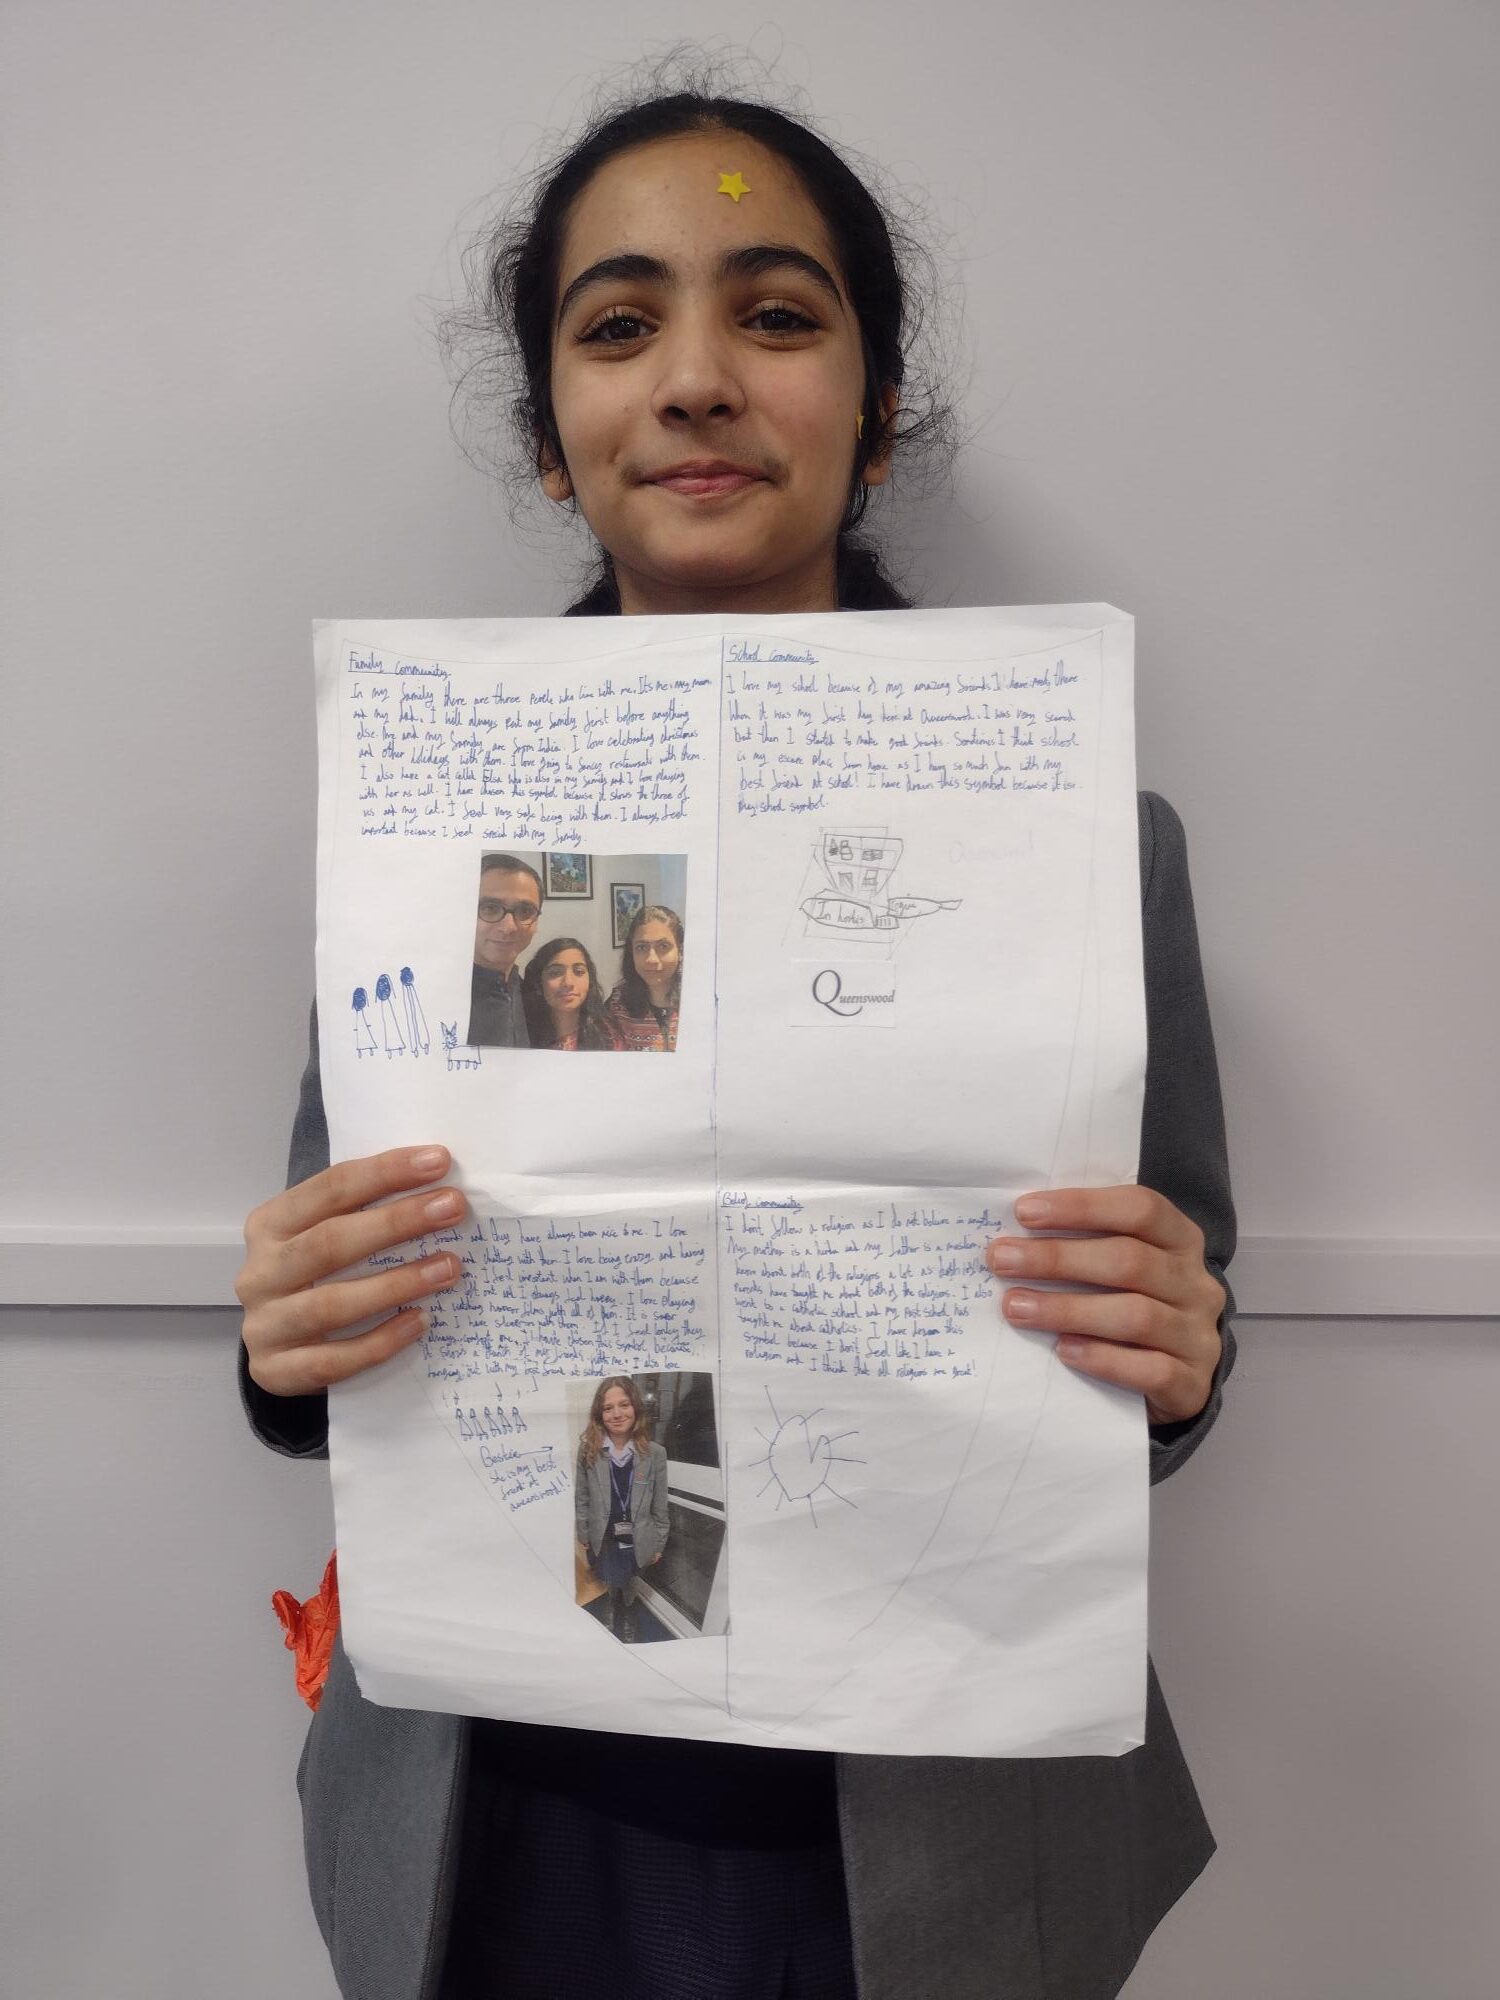 Family Community
In my family there are three people who live with me. Its me, my mom
and my dad. I will always put my family first before anything
else. Me and my family are from India. I love celebrating christmas
and other holidays with them. I love going to fancy restaurants with them.
I also have a cat called Elsa who is also in my family and I love playing
with her as well. I have chosen this symbol because it shows the three of
us and my cat. I feel very safe being with them. I always feel
important because I feel special with my family.
School Community
I love my school because of my amazing friends I have made there
When it was my first day here at Queenswood, I was very scared
but then I started to make good friends. Sometimes I think school
is my escape place from home as I have so much fun with my
best friend at school! I have drawn this symbol because it is
school symbol.
In hortis
Queenswood
my friends and they have always been nice to me. I love
and chatting with them. I love being crazy and having
I feel important when I am with them because
left out and I always feel happy. I love playing
and watching horror films with all of them. It is super
when I have sleepover with them. If I feel lonely they
always comfort me. I have chosen this symbol because
it shows a bunch of my friends with me. I also love
hanging out with my best friend at school.
Bestie
she is my best
friend at
Queenswood!!
Belief Community
I don't follow a religion as I do not believe in anything.
My mother is a hindu and my father is a muslim. I
know about both of the religions a lot as both of my
parents have taught me about both of the religions. I also
went to a catholic school and my past school has
taught me about catholics. I have drawn this
symbol because I don't feel like I have a
religion and I think that all religions are great!